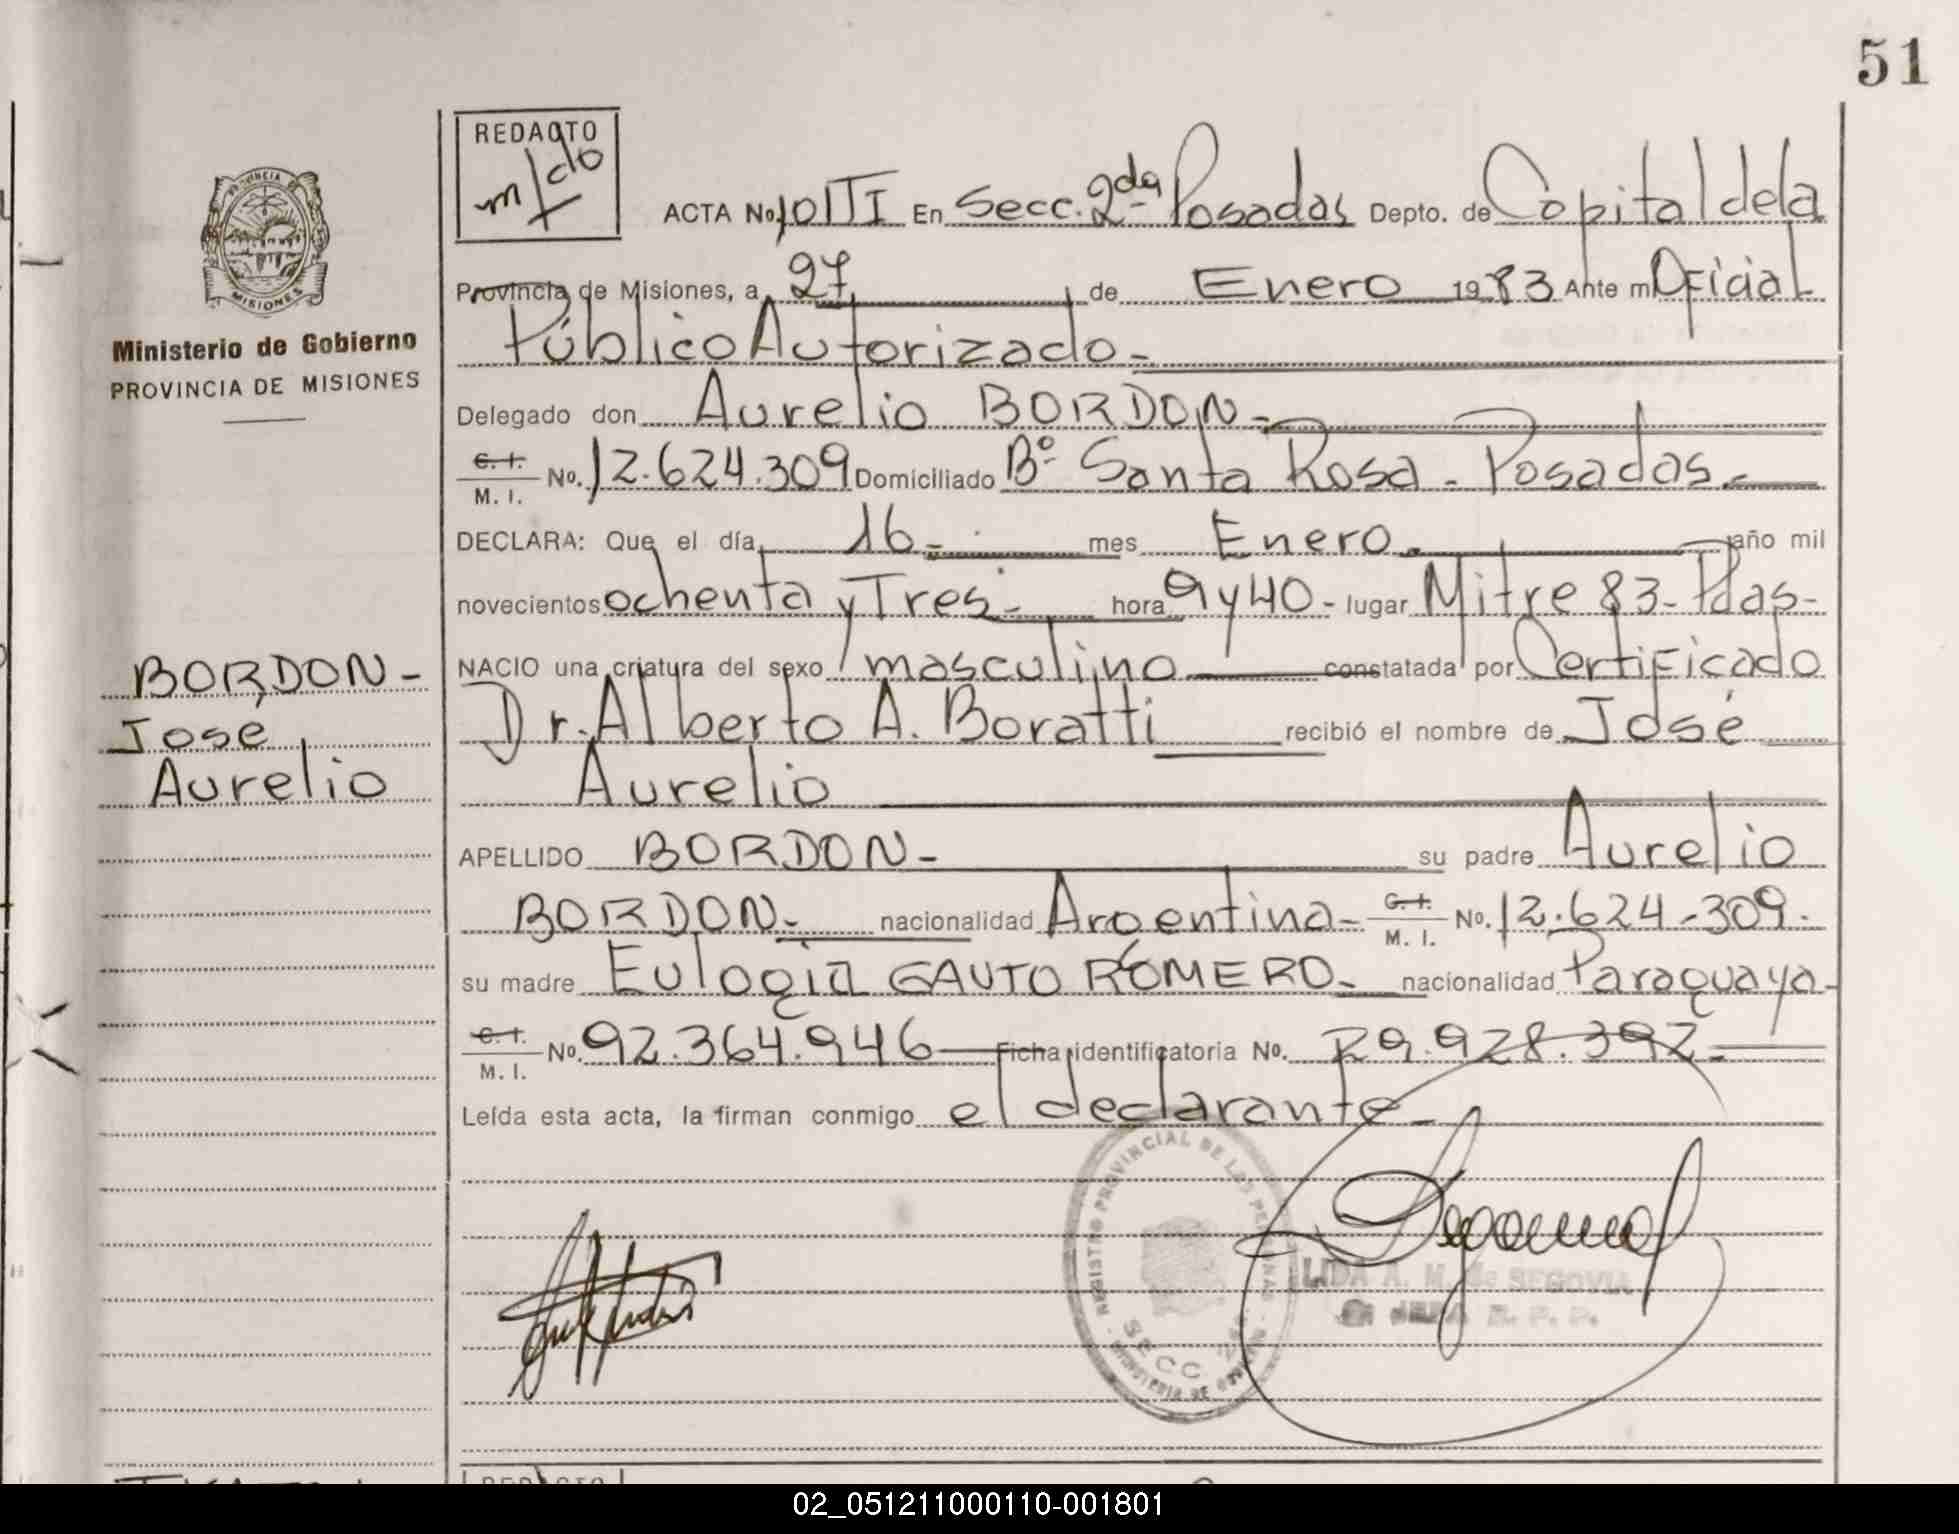 51
REDACTO
m/cdo
ACTA No. 101TI En Secc. 2da Posadas Depto. de Capital de la
PROVINCIA DE MISIONES
Provincia de Misiones, a 27 de Enero 1983 Ante mi Oficial
Ministerio de Gobierno
Público Autorizado-
PROVINCIA DE MISIONES
Delegado don Aurelio BORDON-
C.I. M. I. No. 12.624.309 Domiciliado Bº Santa Rosa - Posadas.-
DECLARA: Que el día 16- mes Enero. año mil
novecientos ochenta y Tres- hora 9 y 40- lugar Mitre 83- Pdas-
NACIO una criatura del sexo masculino constatada por Certificado
Dr. Alberto A. Boratti recibió el nombre de José
Aurelio
BORDON-
José
Aurelio
APELLIDO BORDON- su padre Aurelio
BORDON- nacionalidad Argentina- C.I. M. I. No. 12.624.309.
su madre Eulogia GAUTO ROMERO- nacionalidad Paraguaya-
C.I. M. I. No. 92.364.946 Ficha identificatoria No. 29.928.392-
Leída esta acta, la firman conmigo el declarante-
REGISTRO PROVINCIAL DE LAS PERSONAS
SECC
LIDA A. M. de SEGOVIA
REDACTO
02_051211000110-001801